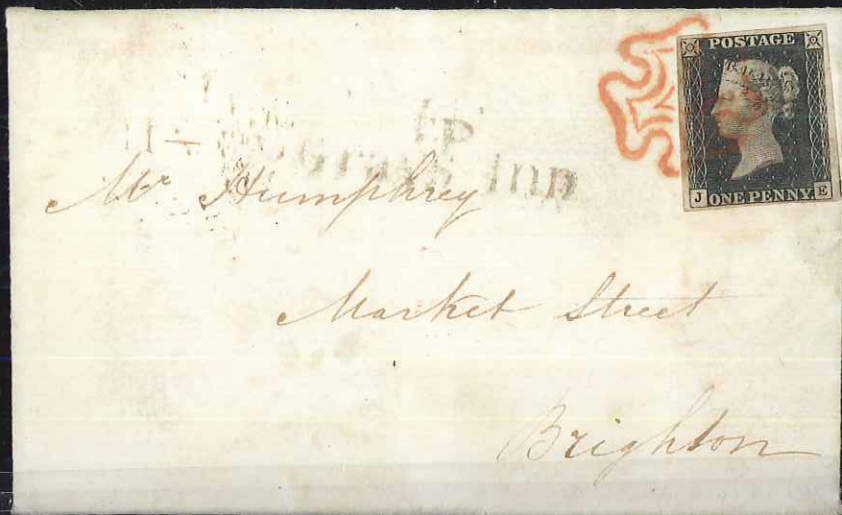 POSTAGE
J ONE PENNY E
T.P
Grays Inn
Mr Humphrey
Market Street
Brighton